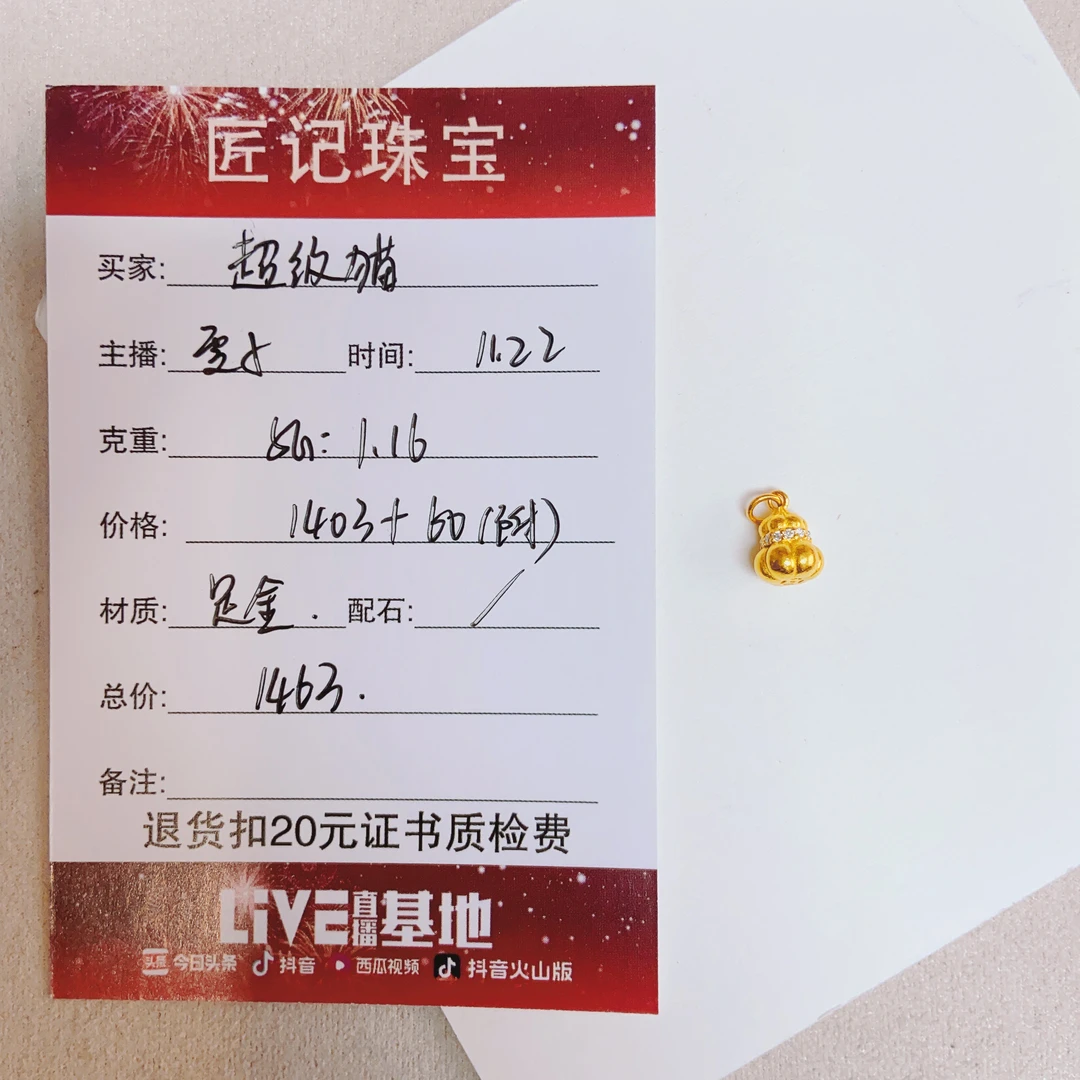 匠记珠宝
买家: 超级猫
主播: 时间: 11.22
克重: 1.16
价格: 1403+60(附)
材质: 足金. 配石: /
总价: 1463.
备注:
退货扣20元证书质检费
LiVE直播基地
头条 今日头条 抖音 西瓜视频 抖音火山版